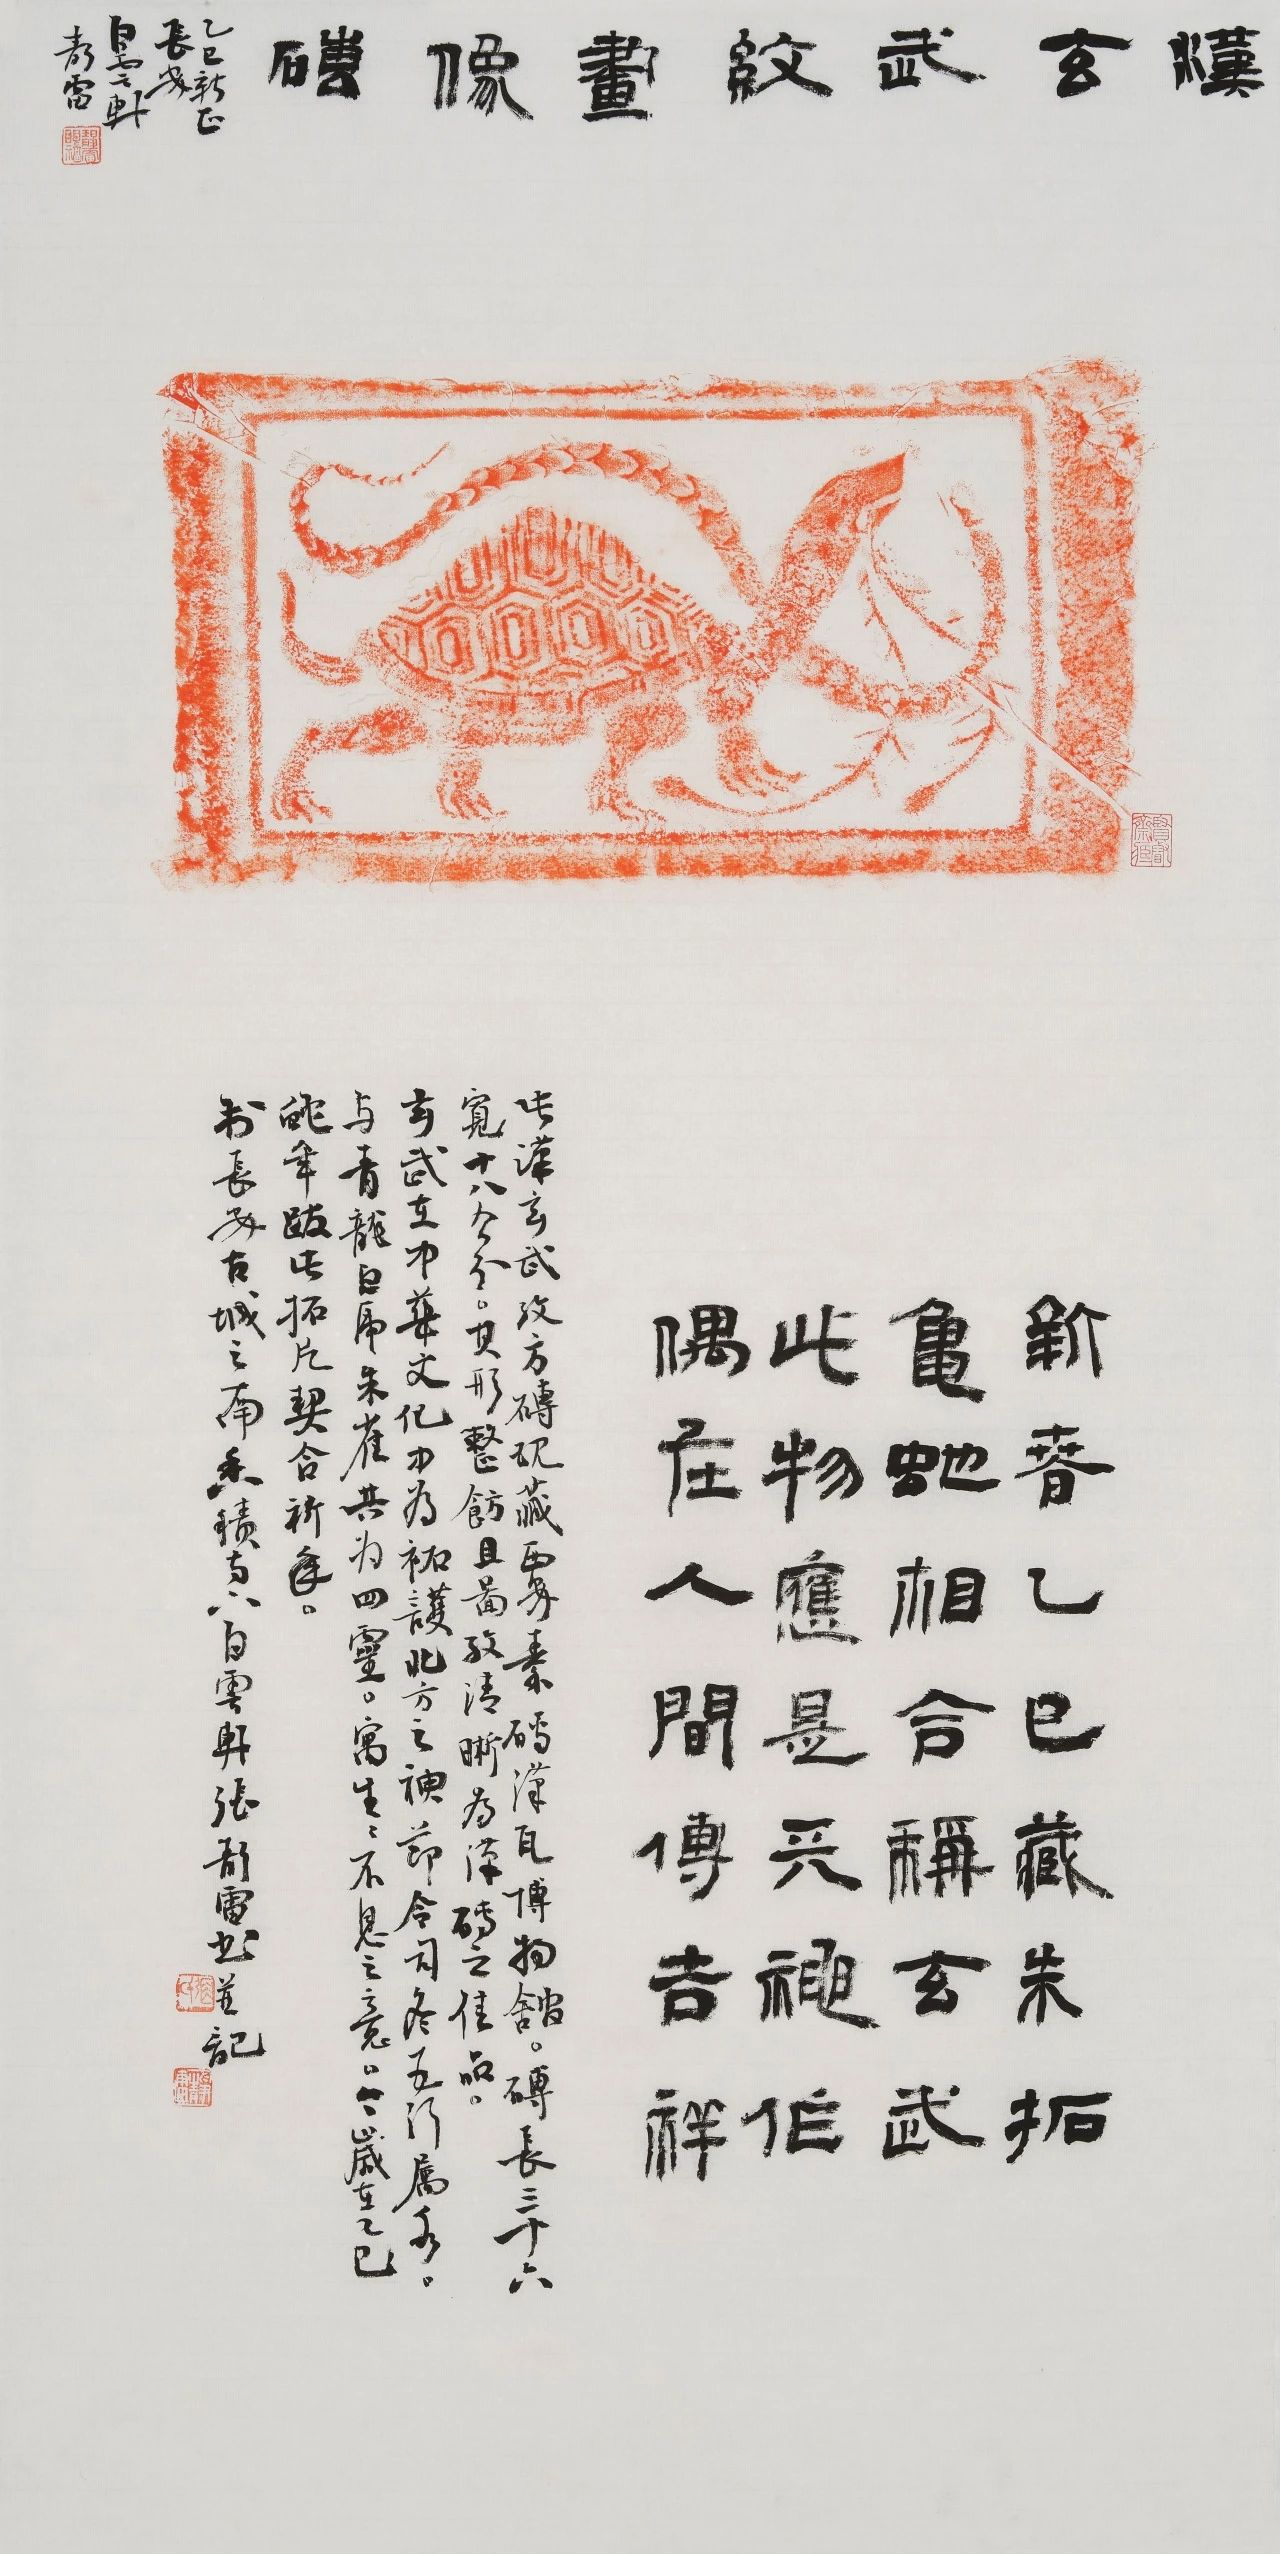 漢玄武紋畫像磚
乙巳新正
長安
白雲軒
新春乙巳藏朱拓
龜虵相合稱玄武
此物應是天神作
偶在人間傳吉祥
此漢玄武紋方磚現藏西安秦磚漢瓦博物館。磚長三十六
寬十八公分。其形整飭且圖紋清晰為漢磚之佳品。
玄武在中華文化中為祐護北方之神節令司冬五行屬水。
与青龍白虎朱雀共为四靈。寓生生不息之意。今歲在乙巳
蛇年跋此拓片契合祈年。
於長安古城之南香積寺下白雲軒張 雷书並記